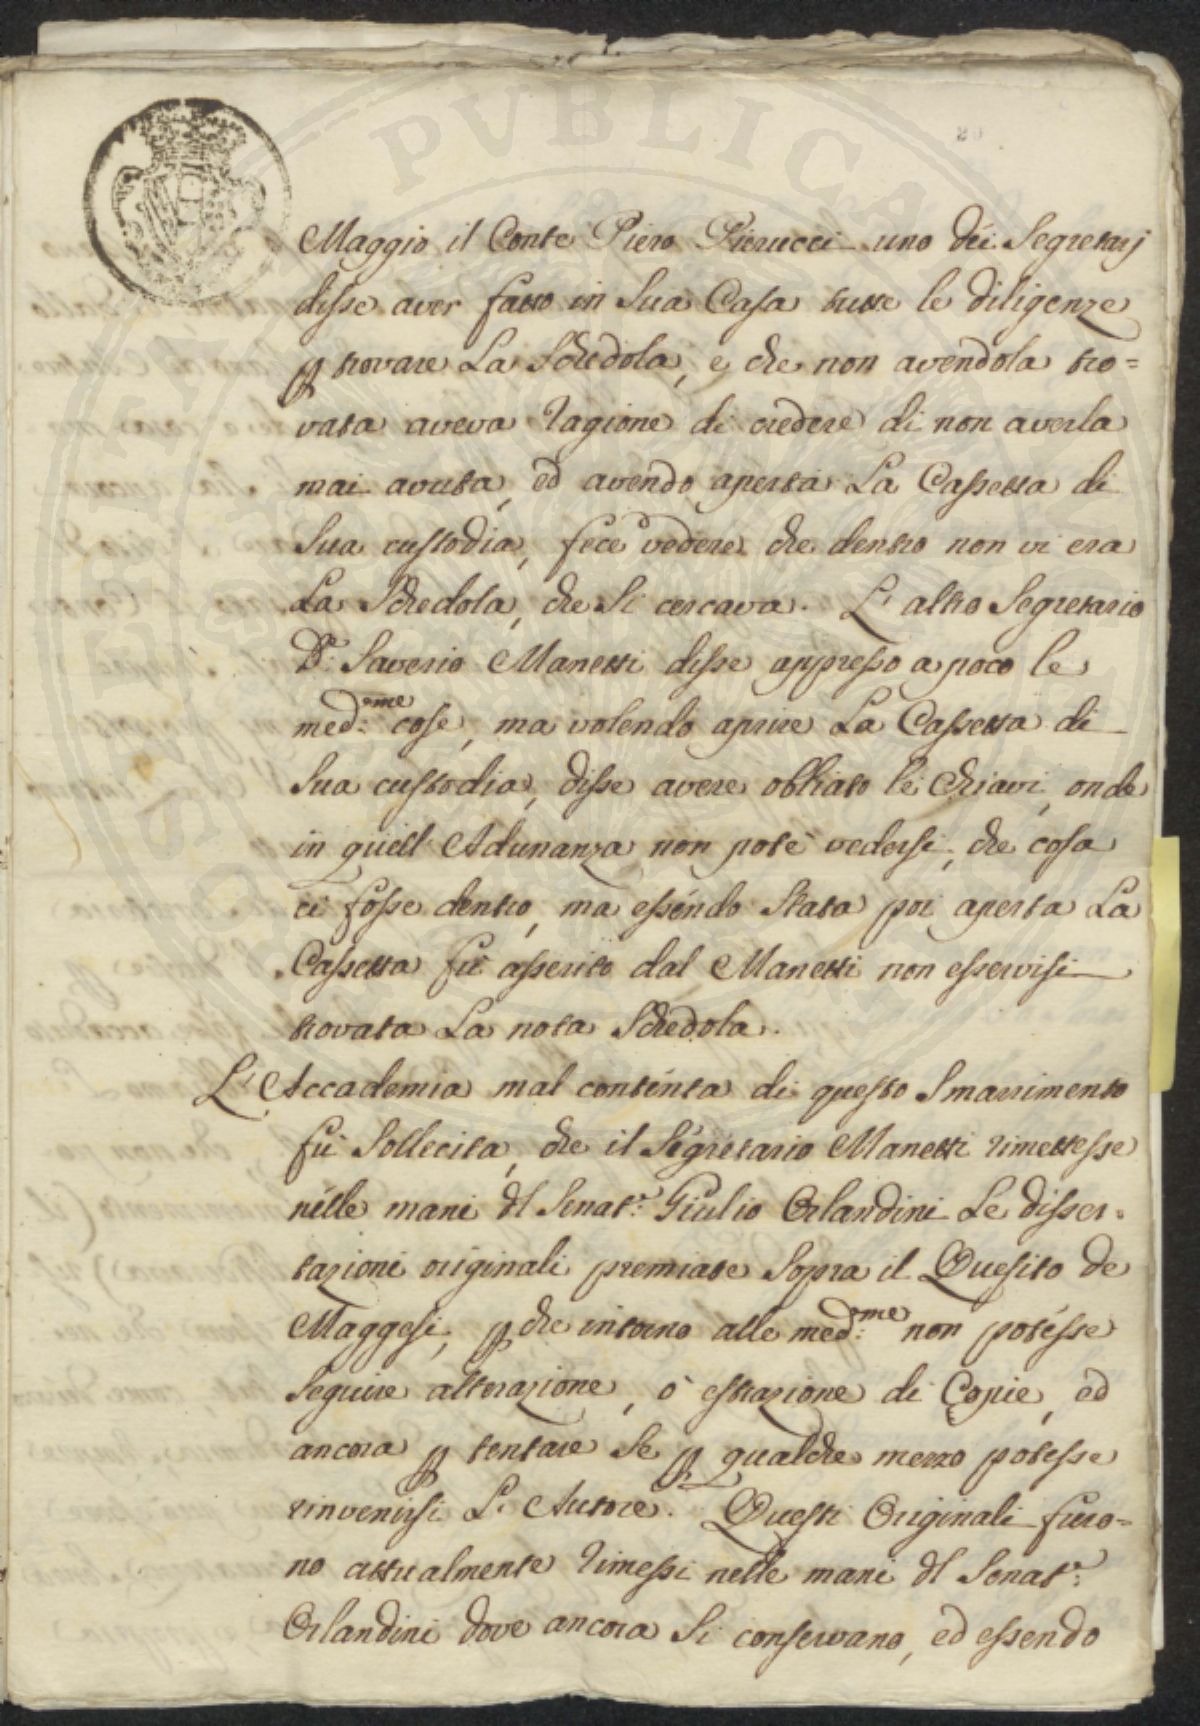 Maggio il Conte Piero Pierucci uno dei Segretarj
disse aver fatto in Sua Casa tutte le diligenze
ꝑ trovare La Schedola, e che non avendola tro=
vata aveva ragione di credere di non averla
mai avuta, ed avendo aperta La Cassetta di
Sua custodia, fece vedere che dentro non vi era
La Schedola, che Si cercava. L' altro Segretario
Dr: Saverio Manetti disse appresso a poco le
med:me cose, ma volendo aprire La Cassetta di
Sua custodia, disse avere obliato le Chiavi, onde
in quell Adunanza non potè vedersi, che cosa
ci fosse dentro, ma essendo Stata poi aperta La
Cassetta fù asserito dal Manetti non esservisi
trovata La nota Schedola.
L' Accademia mal contenta di questo Smarrimento
fù Sollecita, che il Segretario Manetti rimettesse
nelle mani dl Senat:r Giulio Orlandini Le disser=
tazioni originali premiate Sopra il Quesito de
Maggesi, ꝑche intorno alle med:me non potesse
Seguire alterazione, ò estrazione di Copie, ed
ancora ꝑ tentare Se ꝑ qualche mezzo potesse
rinvenirsi L' Autore. Questi Originali furo=
no attualmente rimessi nelle mani dl Senat:r
Orlandini dove ancora Si conservano, ed essendo